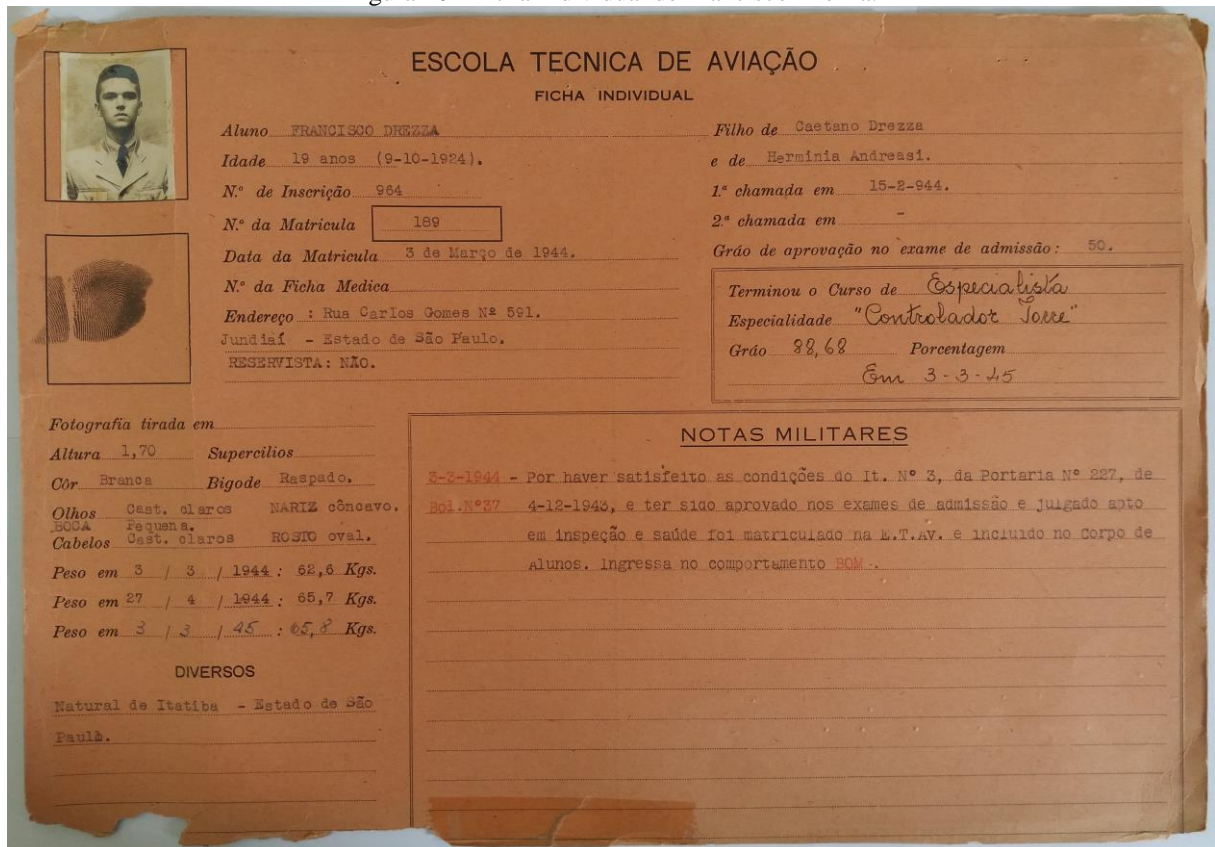 ESCOLA TECNICA DE AVIAÇÃO
FICHA INDIVIDUAL
Aluno FRANCISCO DREZZA
Idade 19 anos (9-10-1924).
N.º de Inscrição 964
N.º da Matrícula 189
Data da Matricula 3 de Março de 1944.
N.º da Ficha Medica
Endereço : Rua Carlos Gomes Nº 591.
Jundiaí - Estado de São Paulo.
RESERVISTA: NÃO.
Filho de Caetano Drezza
e de Herminia Andreasi.
1.ª chamada em 15-2-944.
2.ª chamada em -
Gráo de aprovação no exame de admissão: 50.
Terminou o Curso de Especialista
Especialidade "Controlador Torre"
Gráo 88,68 Porcentagem
Em 3-3-45
Fotografia tirada em
Altura 1,70 Supercilios
Côr Branca Bigode Raspado.
Olhos Cast. claros NARIZ côncavo.
BOCA Pequena.
Cabelos Cast. claros ROSTO oval.
Peso em 3 / 3 / 1944 : 62,6 Kgs.
Peso em 27 / 4 / 1944 : 65,7 Kgs.
Peso em 3 / 3 / 45 : 65,8 Kgs.
DIVERSOS
Natural de Itatiba - Estado de São
Paulo.
NOTAS MILITARES
3-3-1944 - Por haver satisfeito as condições do It. Nº 3, da Portaria Nº 227, de
Bol.Nº37 4-12-1943, e ter sido aprovado nos exames de admissão e julgado apto
em inspeção e saúde foi matriculado na E.T.Av. e incluido no Corpo de
Alunos. Ingressa no comportamento BOM-.